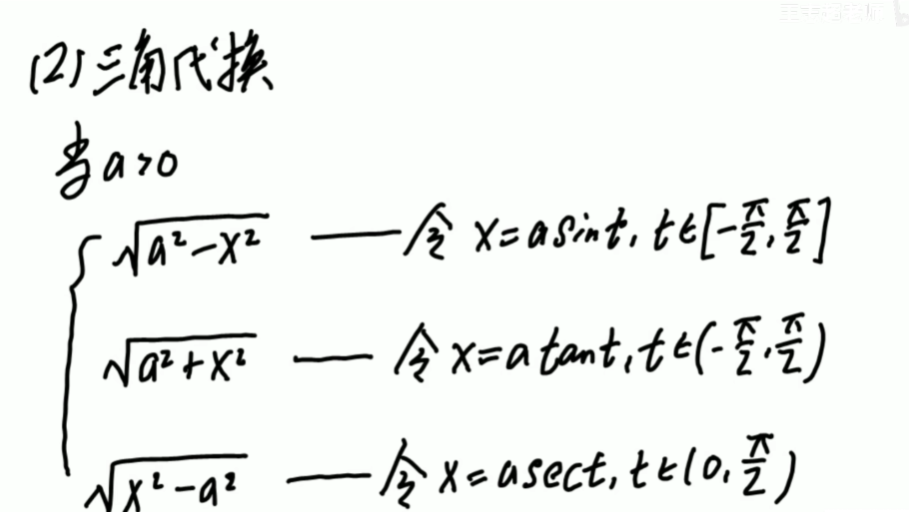 (2) 三角代换
当 a>0
√(a²-x²) —— 令 x=asint, t∈[-π/2, π/2]
√(a²+x²) —— 令 x=atant, t∈(-π/2, π/2)
√(x²-a²) —— 令 x=asect, t∈(0, π/2)